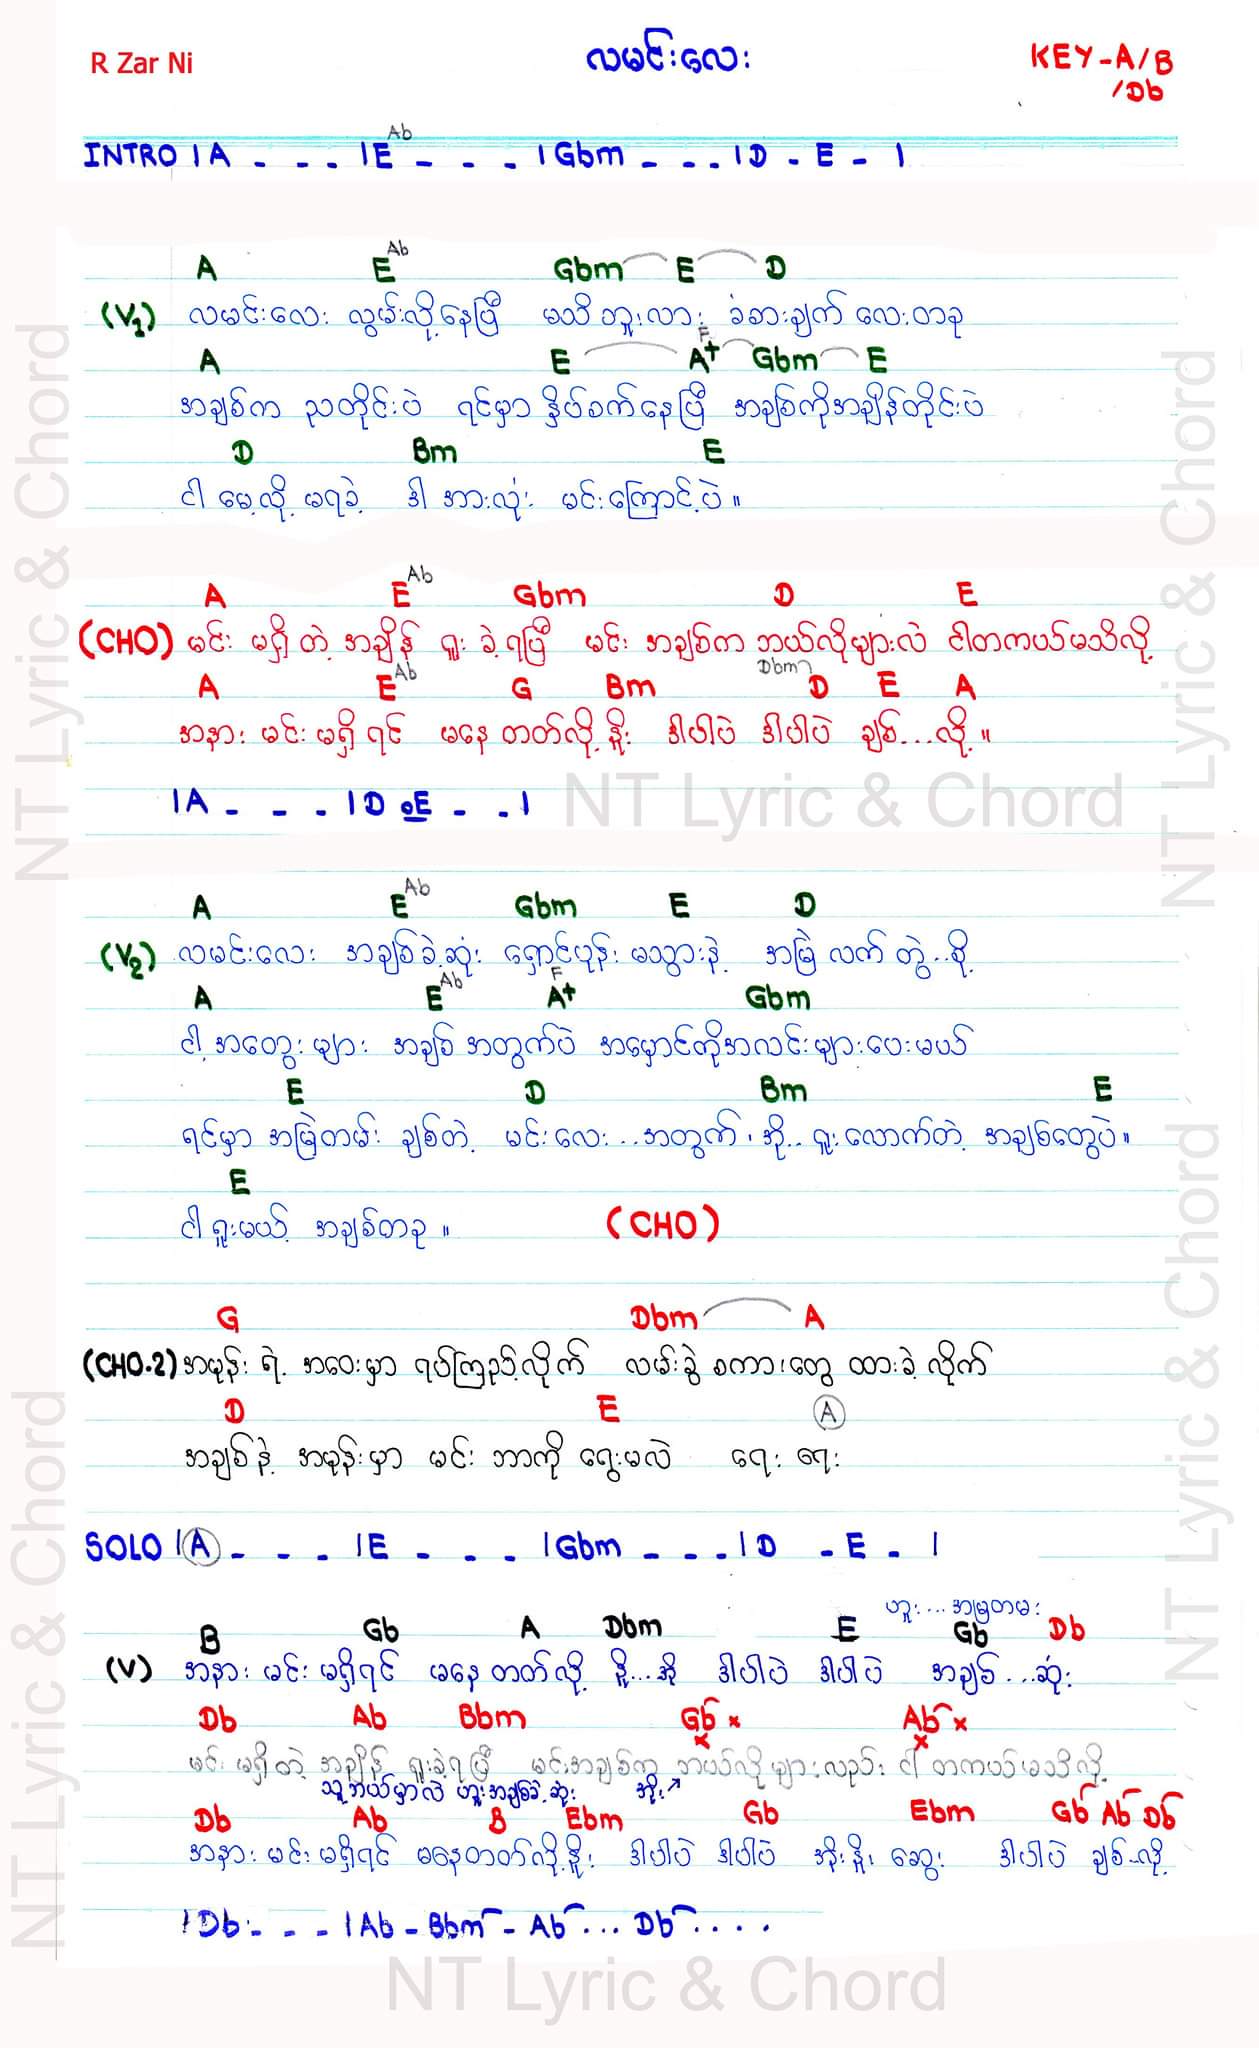 R Zar Ni
လမင်းလေး
KEY-A/B
/Db
Ab
INTRO | A - - - | E - - - | Gbm - - - | D - E - |
A E Ab Gbm E D
(V1) လမင်းလေး လွမ်းလို့နေပြီ မသိဘူးလား ခံစားချက်လေးတခု
A E A+ F Gbm E
အချစ်က ညတိုင်းပဲ ရင်မှာ နှိပ်စက်နေပြီ အချစ်ကိုအချိန်တိုင်းပဲ
D Bm E
ငါ မေ့လို့ မရခဲ့ ဒါ အားလုံး မင်းကြောင့်ပဲ ။
A E Ab Gbm D E
(CHO) မင်း မရှိတဲ့ အချိန် ရူးခဲ့ရပြီ မင်း အချစ်က ဘယ်လိုများလဲ ငါတကယ်မသိလို့
A E Ab G Bm Dbm D E A
အနား မင်းမရှိရင် မနေတတ်လို့ နိုး ဒါပါပဲ ဒါပါပဲ ချစ်...လို့ ။
| A - - - | D . E - - |
NT Lyric & Chord
A E Ab Gbm E D
(V2) လမင်းလေး အချစ်ခဲ့ဆုံး ရှောင်ပုန်း မသွားနဲ့ အမြဲ လက်တွဲ..စို့
A E Ab A+ F Gbm
ငါ့ အတွေးများ အချစ် အတွက်ပဲ အမှောင်ကိုအလင်းများပေးမယ်
E D Bm E
ရင်မှာ အမြဲတမ်း ချစ်တဲ့ မင်းလေး...အတွက်၊ အို.. ရူးလောက်တဲ့ အချစ်တွေပဲ ။
E
ငါ ရူးမယ့် အချစ်တခု ။ (CHO)
G Dbm A
(CHO.2) အမုန်း ရဲ့ အဝေးမှာ ရပ်ကြည့်လိုက် လမ်းခွဲ စကားတွေ ထားခဲ့လိုက်
D E A
အချစ်နဲ့ အမုန်းမှာ မင်း ဘာကို ရွေးမလဲ ရေး ရေး
SOLO | A - - - | E - - - | Gbm - - - | D - E - |
ဟူး...အမြဲတမ်း
B Gb A Dbm E Gb Db
(V) အနား မင်း မရှိရင် မနေတတ်လို့ နို...အို ဒါပါပဲ ဒါပါပဲ အချစ်...ဆုံး
Db Ab Bbm Gb x Ab x
မင်း မရှိတဲ့ အချိန် ရူးခဲ့ရပြီ မင်းအချစ်က ဘယ်လိုများလည်း ငါ တကယ်မသိလို့
သူ့ဘယ်မှာလဲ ဟူးအချစ်ခဲ့ဆုံး အိုး
Db Ab B Ebm Gb Ebm Gb Ab Db
အနား မင်းမရှိရင် မနေတတ်လို့နိုး ဒါပါပဲ ဒါပါပဲ အိုးနိုး ဆွေး ဒါပါပဲ ချစ်..လို့
| Db - - - | Ab - Bbm - Ab ... Db ....
NT Lyric & Chord
NT Lyric & Chord
NT Lyric & Chord
NT Lyric & Chord
NT Lyric & Chord